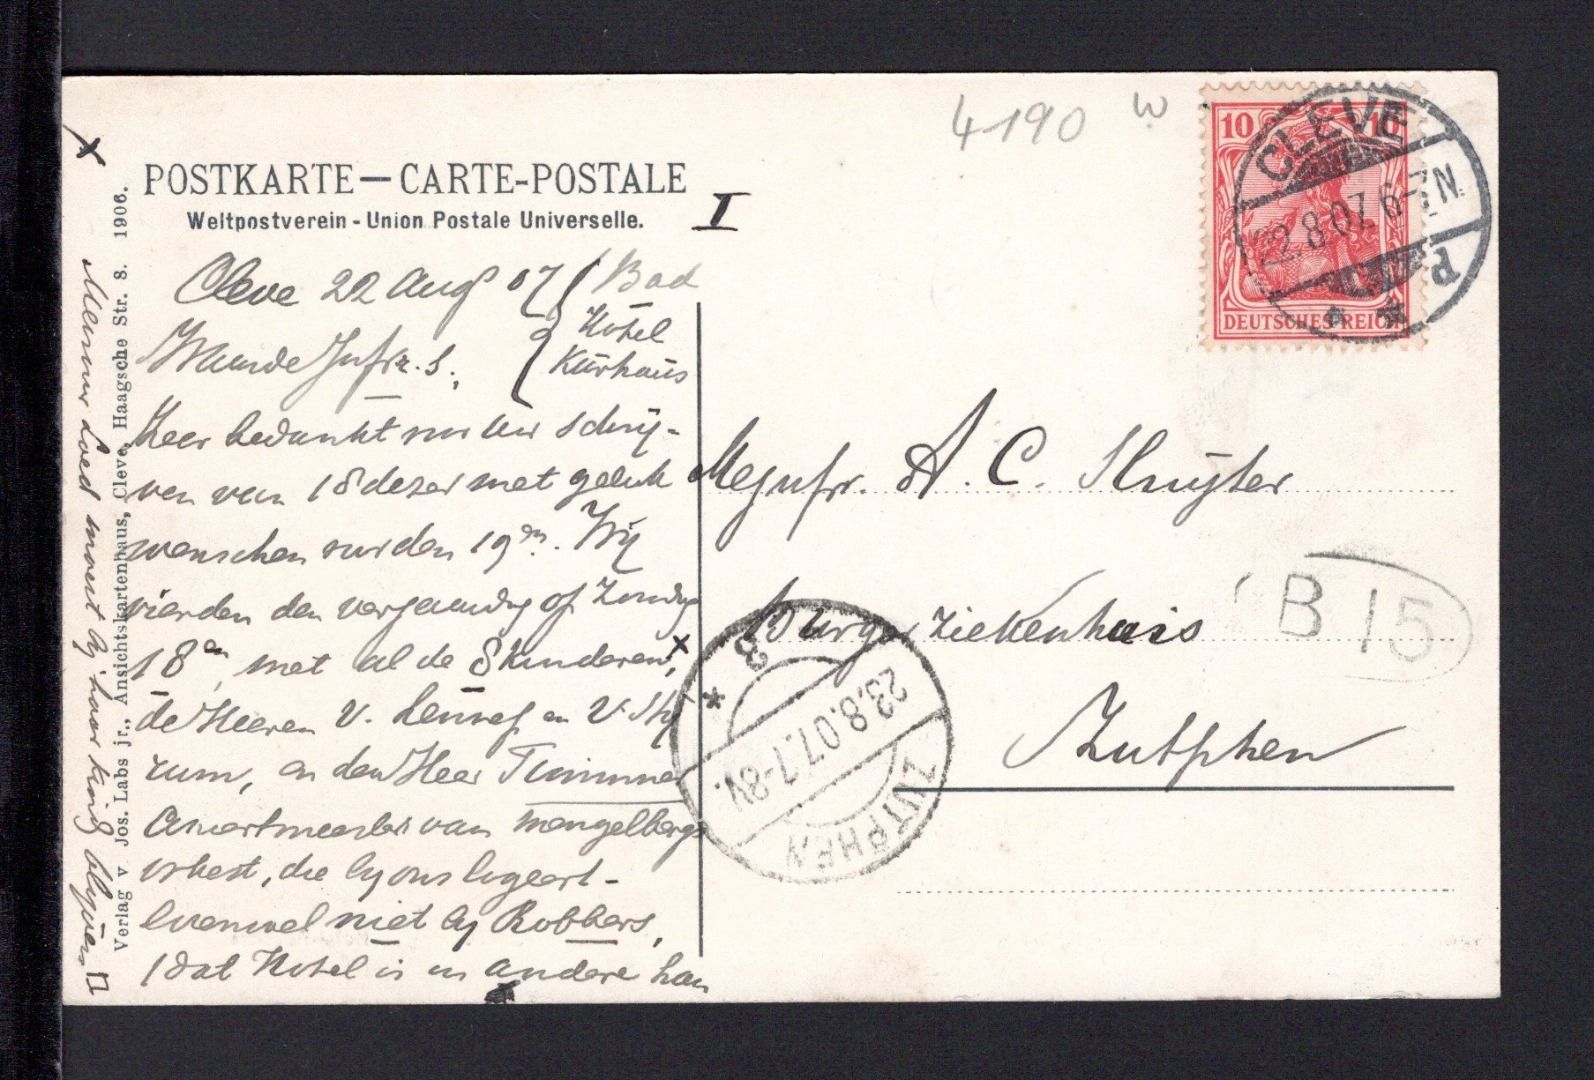 4190 W
POSTKARTE — CARTE-POSTALE
Weltpostverein - Union Postale Universelle.
I
Cleve 22 Aug 07
Bad
Hotel
Kurhaus
Waarde Jufr. S.
Zeer bedankt voor Uw schrij-
ven van 18 dezer met geluk
wenschen voor den 19en. Wij
vierden den verjaardag op Zondag
18en, met al de 8 kinderen, x
de Heeren V. en V.
en den Heer
van Mengelbergs
orkest, die bij ons logeert -
evenwel niet bij Robbers,
(dat Hotel is in andere han
x
Mevrouw moest bij haar kind blijven
Verlag v. Jos. Labs jr., Ansichtskartenhaus, Cleve, Haagsche Str. 8. 1906.
10 10
DEUTSCHES REICH
CLEVE
22.8.07.6-7N
Mejufr. A. C. Sluyter
Burger Ziekenhuis
Zutphen
B 15
ZUTPHEN
23.8.07.7-8V.
3